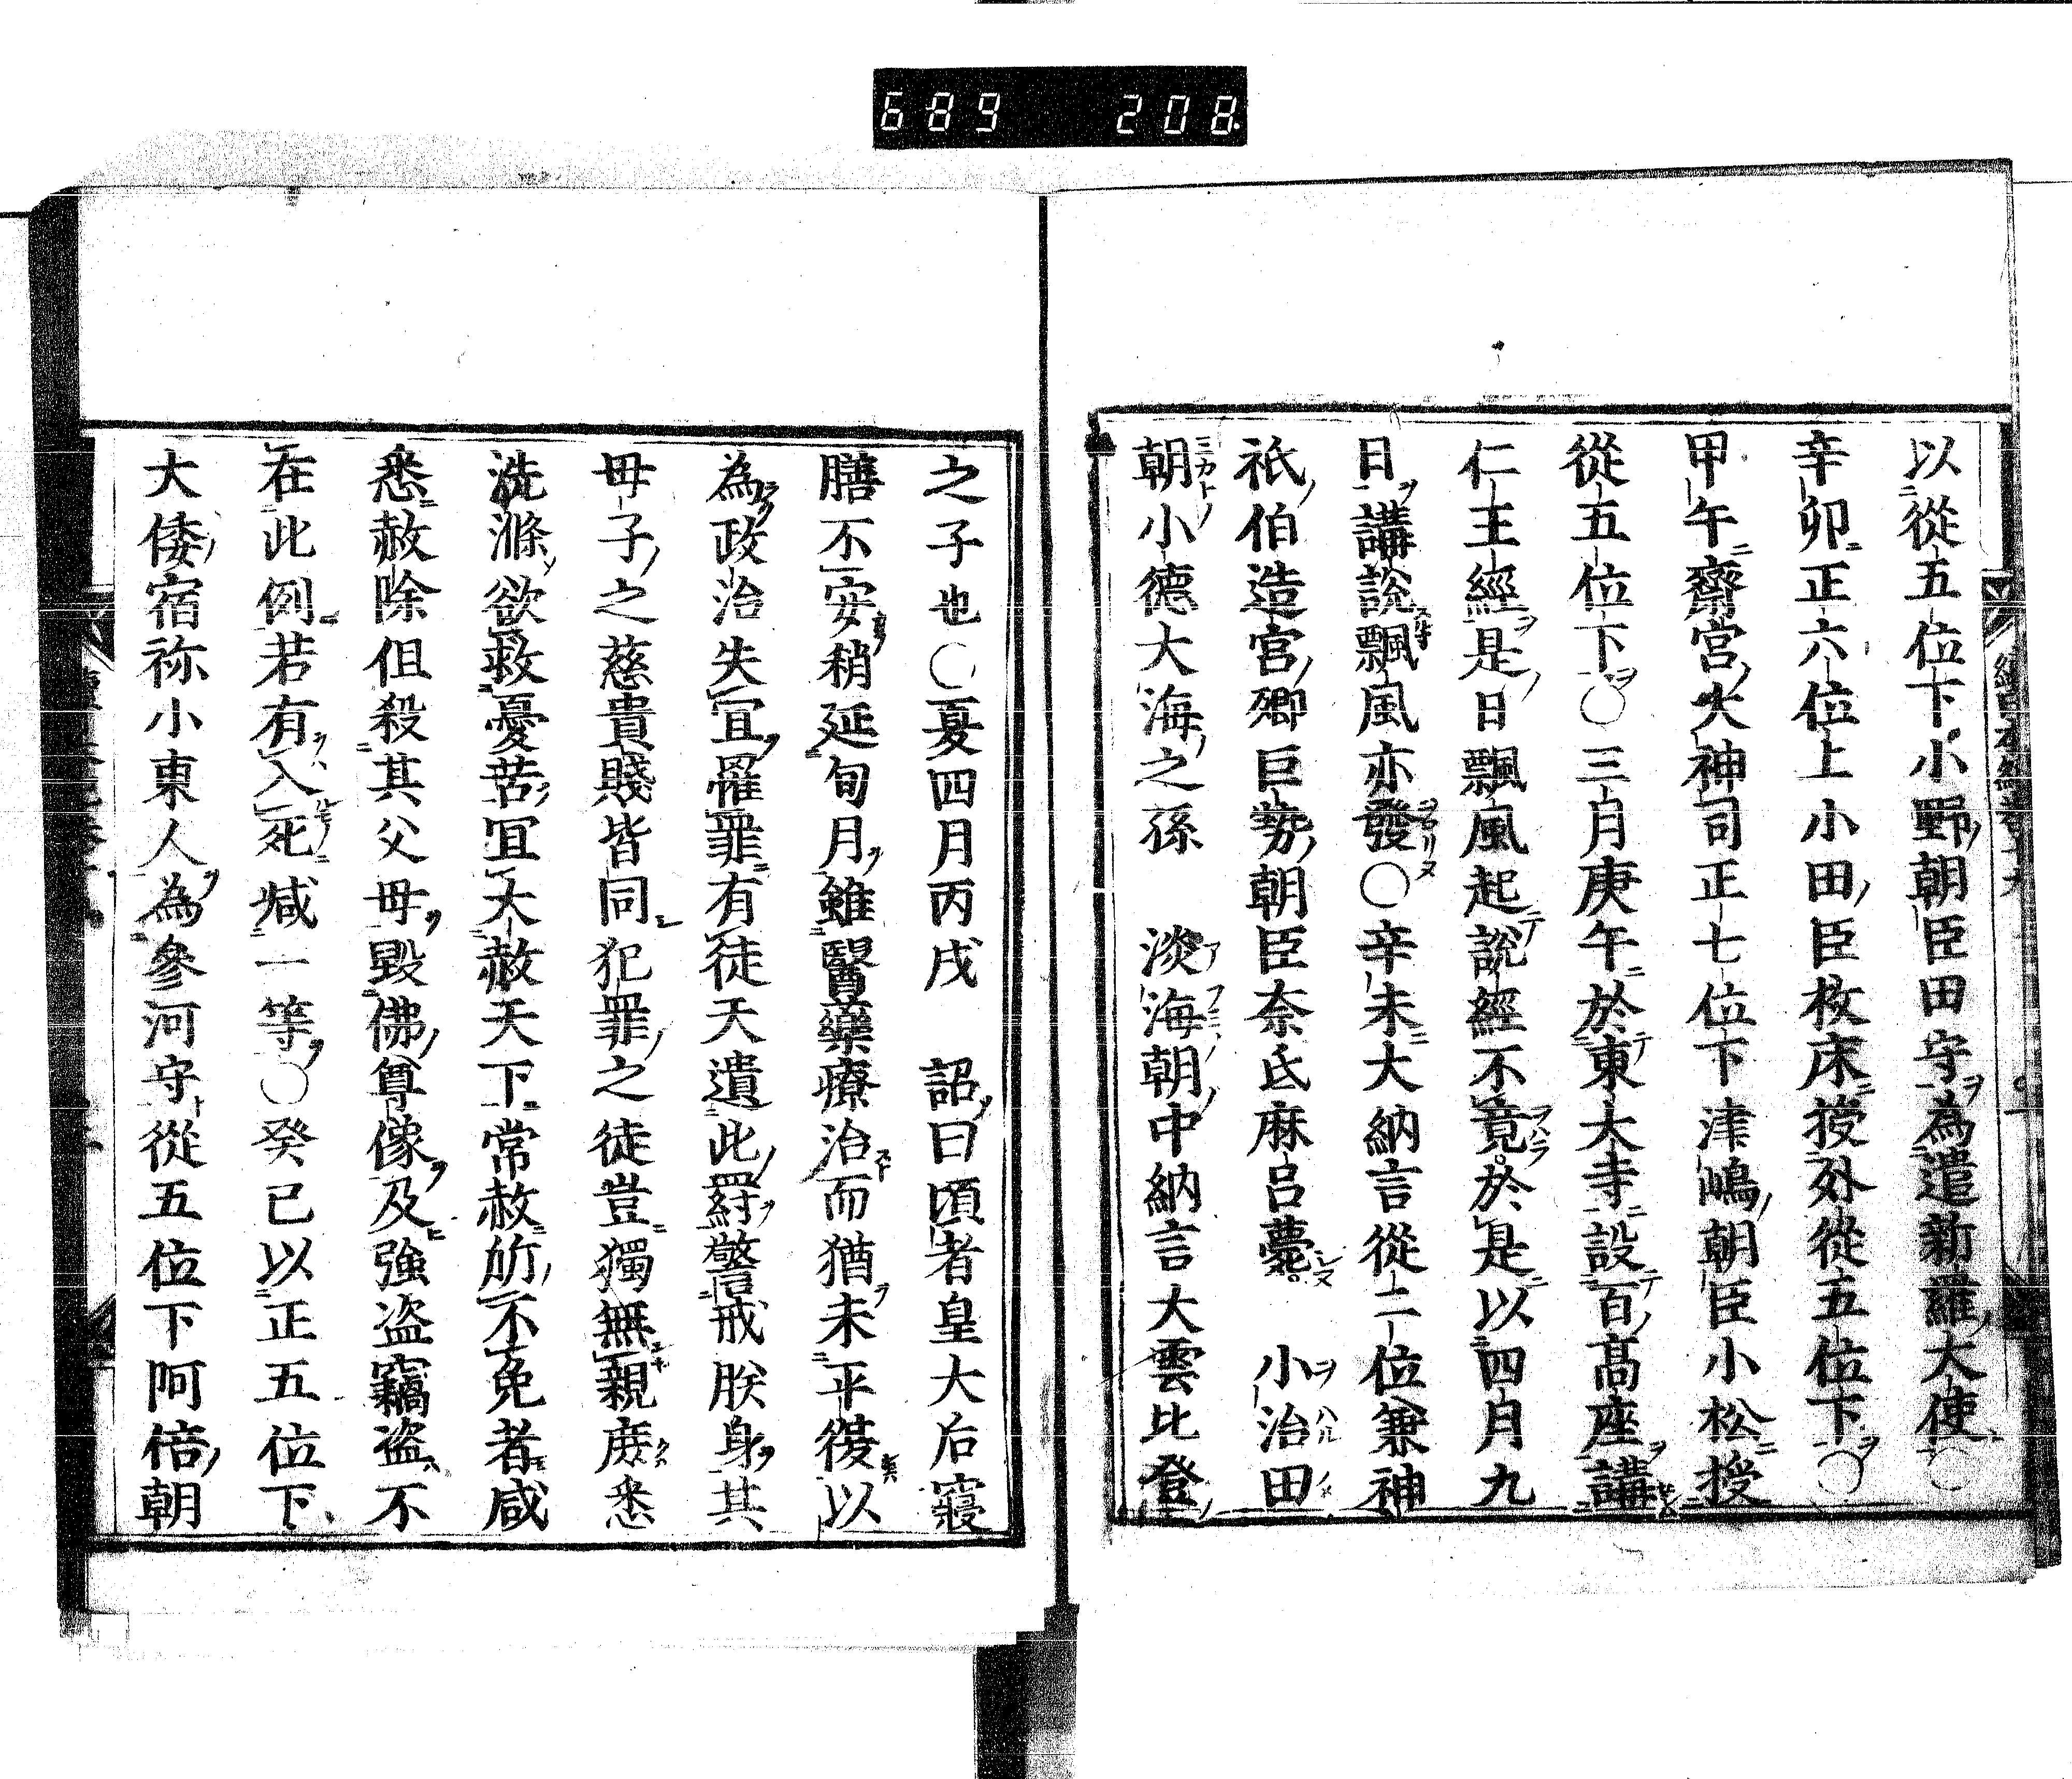 689 208
以從五位下小野朝臣田守為遣新羅大使○
辛卯正六位上小田臣枚床授外從五位下○
甲午齋宮大神司正七位下津嶋朝臣小松授
從五位下○三月庚午於東大寺設百髙座講
仁王經是日飄風起說經不竟於是以四月九
日講說飄風亦發○辛未大納言從二位兼神
祇伯造宮卿巨勢朝臣奈氐麻呂薨小治田
朝小德大海之孫淡海朝中納言大雲比登
之子也○夏四月丙戌詔曰頃者皇大后寢
膳不安稍延旬月雖醫藥療治而猶未平復以
為政治失宜罹罪有徒天遺此罸警戒朕身其
母子之慈貴賤皆同犯罪之徒豈獨無親庶悉
洗滌欲救憂苦宜大赦天下常赦所不免者咸
悉赦除但殺其父母毀佛尊像及強盗竊盗不
在此例若有入死減一等○癸巳以正五位下
大倭宿祢小東人為參河守從五位下阿倍朝